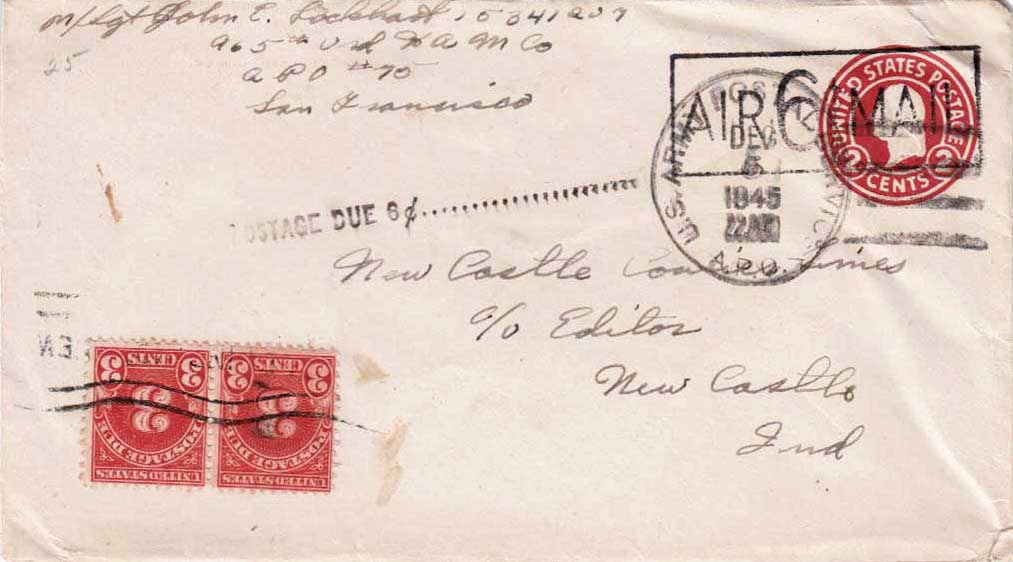 M/Sgt John E. Lockhart 15041207
965th Ord H A M Co
25
APO #70
San Francisco
AIR 6 MAIL
UNITED STATES POSTAGE
2 CENTS 2
U.S. ARMY POSTAL
DEC
5
1945
A.P.O.
POSTAGE DUE 6¢
New Castle Times
c/o Editor
New Castle
Ind
UNITED STATES
POSTAGE DUE
3
3 CENTS 3
UNITED STATES
POSTAGE DUE
3
3 CENTS 3